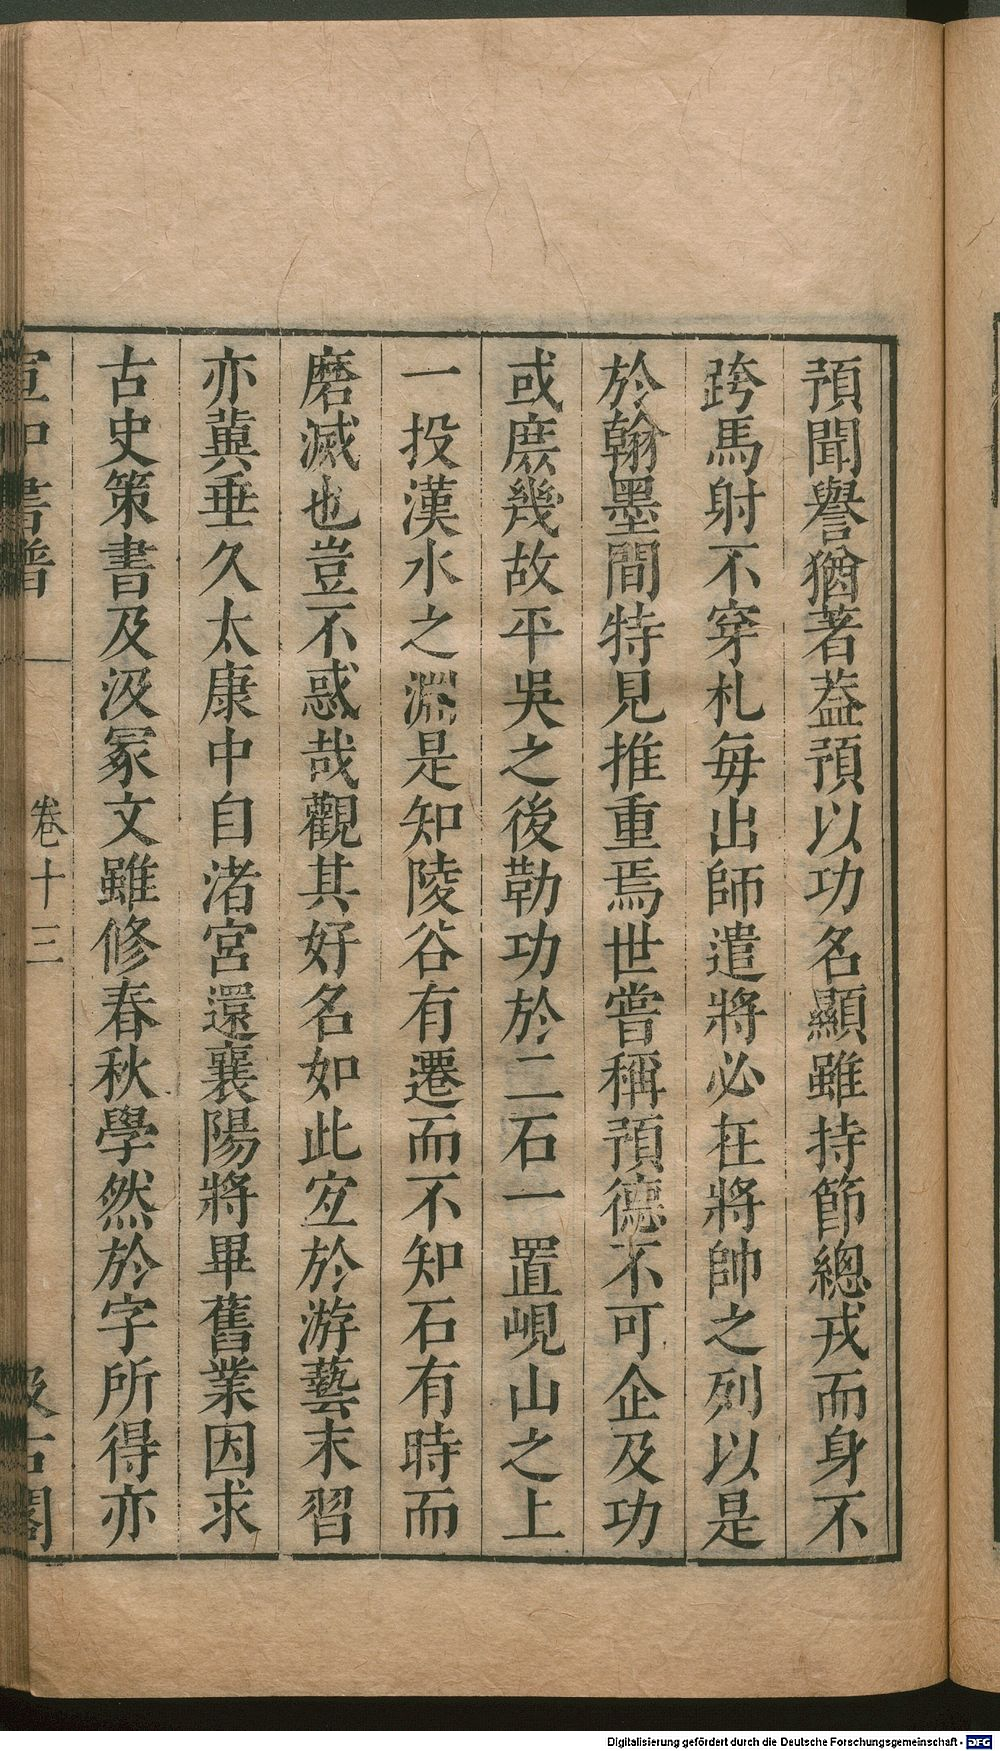 預聞譽猶著葢預以功名顯雖持節總戎而身不
跨馬射不穿札每出師遣將必在將帥之列以是
於翰墨間特見推重焉世嘗稱預德不可企及功
或庶幾故平吳之後勒功於二石一置峴山之上
一投漢水之淵是知陵谷有遷而不知石有時而
磨滅也豈不惑哉觀其好名如此宐於游藝末習
亦冀垂久太康中自渚宮還襄陽將畢舊業因求
古史策書及汲冢文雖修春秋學然於字所得亦
宣和書譜 卷十三 汲古閣
Digitalisierung gefördert durch die Deutsche Forschungsgemeinschaft - DFG